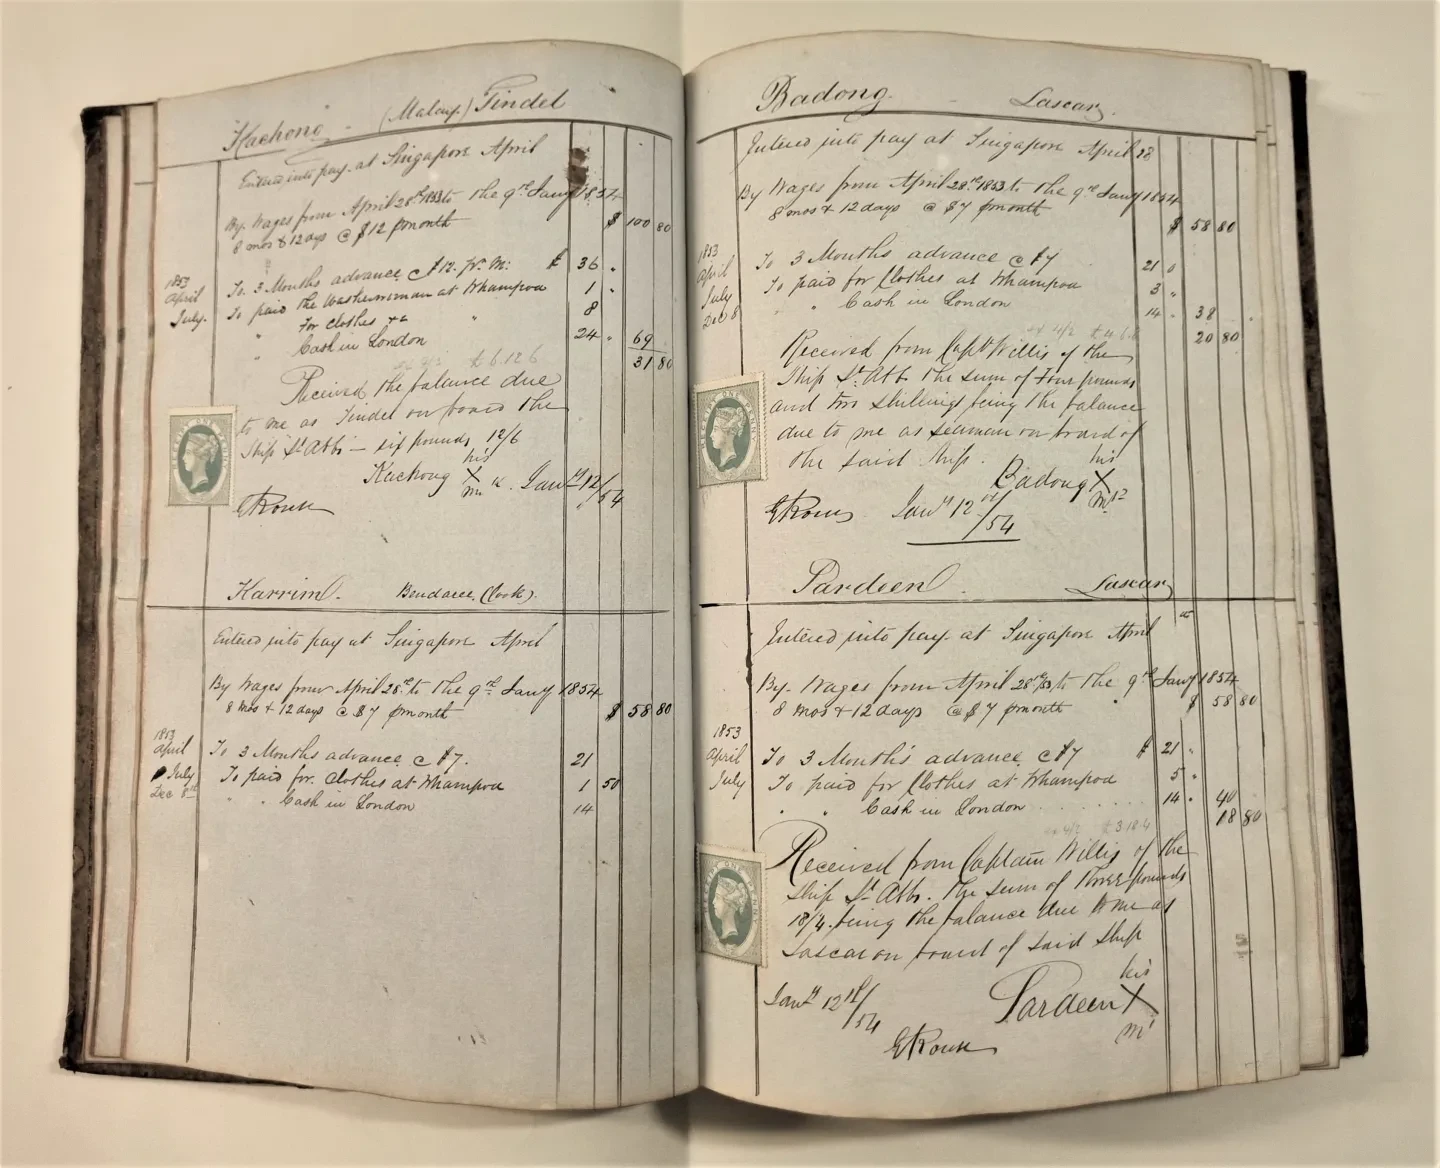 Kachong - (Malay.) Tindel
Entered into pay at Singapore April
By Wages from April 28th 1853 to the 9th Jany 1854
8 mos & 12 days @ $12 pmonth $ 100 80
1853
April To 3 Months advance @ $12. pr. M: $ 36 "
July. To paid the washerwoman at Whampoa 1 "
" for clothes &c " 8
" Cash in London 24 " 69
31 80
4/2 £6.12.6
Received the balance due
to me as Tindel on board the
Ship St Abbs - six pounds 12/6
his
Kachong X Jany 12/54
mk
ERouse
Karrim. Bendaree (Cook).
Entered into pay at Singapore April
By Wages from April 28th to the 9th Jany 1854
8 mos & 12 days @ $7 pmonth $ 58 80
1853
April To 3 Months advance @ $7. 21
July To paid for clothes at Whampoa 1 50
Dec 8th " " Cash in London 14
Badong - Lascar.
Entered into pay at Singapore April 28
By Wages from April 28th 1853 to the 9th Jany 1854
8 mos & 12 days @ $7 pmonth $ 58 80
1853
April To 3 Months advance @ $7 21 0
July To paid for Clothes at Whampoa 3 "
Dec 8 " Cash in London 14 " 38
20 80
4/2 £4.6.8
Received from Capt Willis of the
Ship St Abbs the sum of Four pounds
and two shillings being the balance
due to me as seaman on board of
the said Ship.
his
Badong X
mk
ERouse Jany 12th/54
Pardeen. Lascar
Entered into pay at Singapore April
By Wages from April 28th/53 to the 9th Jany 1854
8 mos & 12 days @ $7 pmonth $ 58 80
1853
April To 3 Months advance @ $7 $ 21 "
July To paid for Clothes at Whampoa 5 "
" " Cash in London 14 " 40
18 80
4/2 £3.18.4
Received from Captain Willis of the
Ship St Abbs. the sum of three pounds
18/4. being the balance due to me as
Lascar on board of said Ship
his
Jany 12th/54 Pardeen X
mk
ERouse